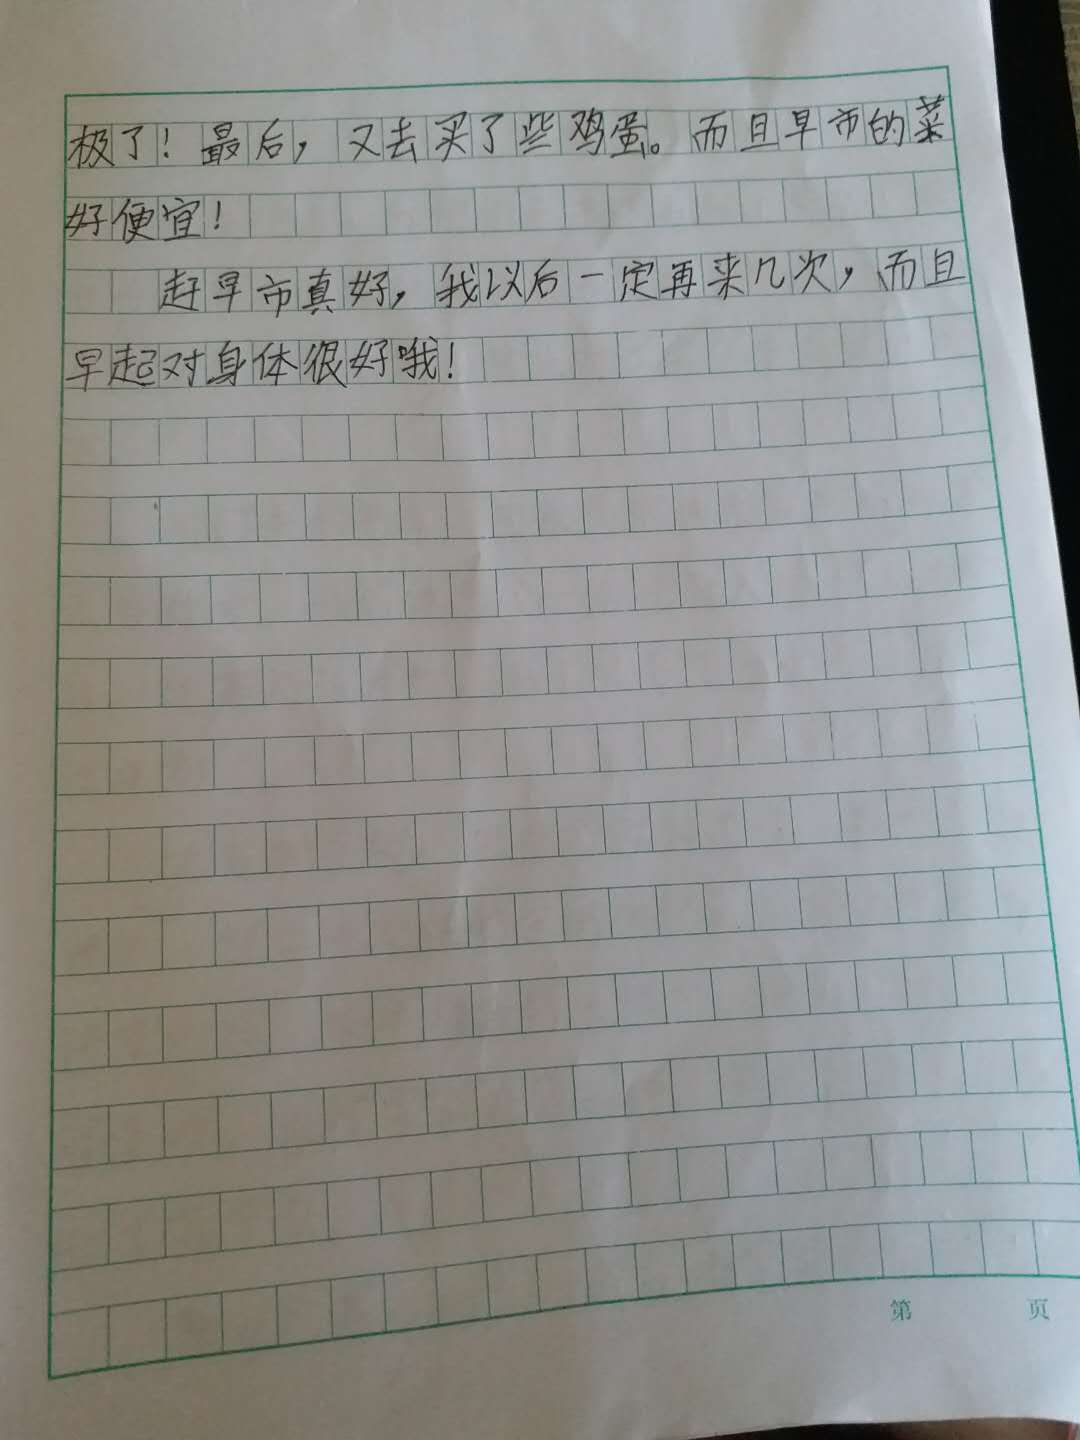 极了！最后，又去买了些鸡蛋。而且早市的菜
好便宜！
赶早市真好，我以后一定再来几次，而且
早起对身体很好哦！
第 页